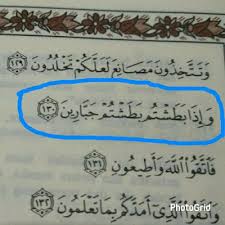 وَتَتَّخِذُونَ مَصَانِعَ لَعَلَّكُمْ تَخْلُدُونَ ﴿١٢٩﴾
وَإِذَا بَطَشْتُم بَطَشْتُمْ جَبَّارِينَ ﴿١٣٠﴾
فَاتَّقُوا اللَّهَ وَأَطِيعُونِ ﴿١٣١﴾
وَاتَّقُوا الَّذِي أَمَدَّكُم بِمَا تَعْلَمُونَ ﴿١٣٢﴾
PhotoGrid